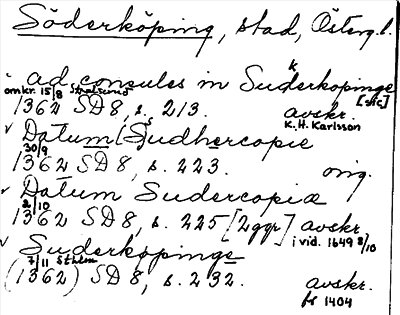 Söderköping, stad, Östergl.
ad consules in Suderkopinge [sic]
omkr. 15/8 Stralsund
1362 SD 8, s. 213. avskr.
K. H. Karlsson
Datum Sudhercopie
30/9
1362 SD 8, s. 223. orig.
Datum Sudercopiæ
2/10
1362 SD 8, s. 225 [2ggr] avskr
i vid. 1649 8/10
Suderköpinge
7/11 Sthlm
(1362) SD 8, s. 232. avskr.
fr 1404